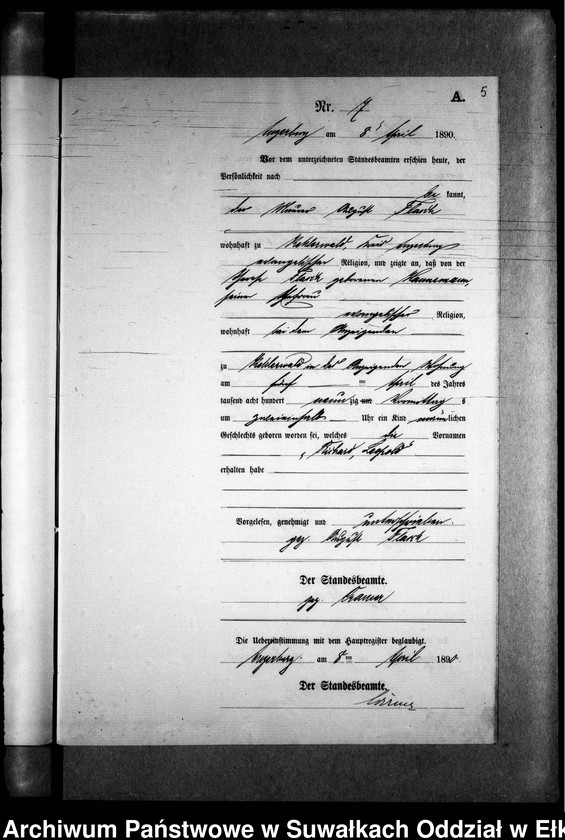 A. 5
Nr. 7
am 8 April 1890.
Vor dem unterzeichneten Standesbeamten erschien heute, der
Persönlichkeit nach
be kannt,
der Maurer August Flack
wohnhaft zu Kehlerwald
evangelischer Religion, und zeigte an, daß von der
Flack geborenen Hannemann,
seiner Ehefrau
evangelischer Religion,
wohnhaft bei dem Anzeigenden
zu Kehlerwald in des Anzeigenden Wohnung
am fünf ten April des Jahres
tausend acht hundert neun zig Vormittag s
um Uhr ein Kind männlichen
Geschlechts geboren worden sei, welches die Vornamen
„Richard, Leopold“
erhalten habe
Vorgelesen, genehmigt und unterschrieben.
gez. August Flack
Der Standesbeamte.
gez.
Die Uebereinstimmung mit dem Hauptregister beglaubigt.
am 8 ten April 1890
Der Standesbeamte.
Archiwum Państwowe w Suwałkach Oddział w Ełk